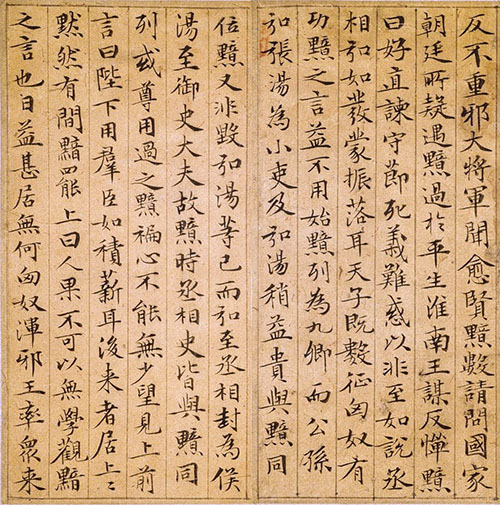 反不重邪大將軍聞愈賢黯數請問國家
朝廷所疑遇黯過於平生淮南王謀反憚黯
曰好直諫守節死義難惑以非至如說丞
相弘如發蒙振落耳天子既數征匈奴有
功黯之言益不用始黯列為九卿而公孫
弘張湯為小吏及弘湯稍益貴與黯同
位黯又非毀弘湯等已而弘至丞相封為侯
湯至御史大夫故黯時丞相史皆與黯同
列或尊用過之黯褊心不能無少望見上前
言曰陛下用羣臣如積薪耳後来者居上〻
默然有間黯罷上曰人果不可以無學觀黯
之言也日益甚居無何匈奴渾邪王率眾来